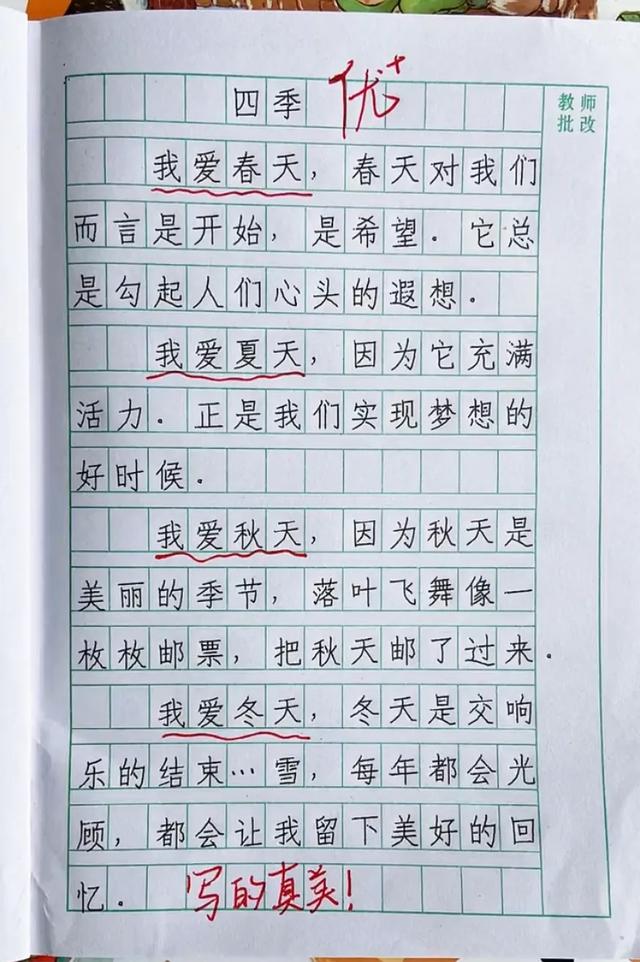 四季 优+
教师
批改
我爱春天，春天对我们
而言是开始，是希望．它总
是勾起人们心头的遐想．
我爱夏天，因为它充满
活力．正是我们实现梦想的
好时候．
我爱秋天，因为秋天是
美丽的季节，落叶飞舞像一
枚枚邮票，把秋天邮了过来．
我爱冬天，冬天是交响
乐的结束…雪，每年都会光
顾，都会让我留下美好的回
忆．写的真美！